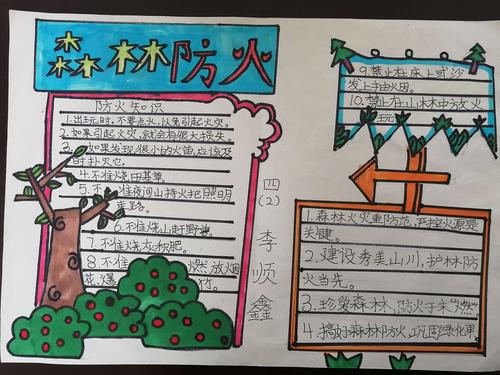 森林防火
防火知识
1.出玩时,不要点火,以免引起火灾。
2.如果引起火灾,就会有很大损失。
3.如果发现很小的火苗,应该及
时扑灭它。
4.不准烧田基草。
5.不准夜间山持火把照明
走路。
6.不准烧山赶野兽。
7.不准烧灰积肥。
8.不准燃放烟
花爆竹。
四(2)李顺鑫
9.禁止在床上或沙
发上抽火因。
10.禁止在山林中方火
玩
1.森林火灾重防范,严控火源是
关键。
2.建设秀美山川,护林防
火当先。
3.珍爱森林,防火于未“燃”。
4.搞好森林防火,巩固绿化果